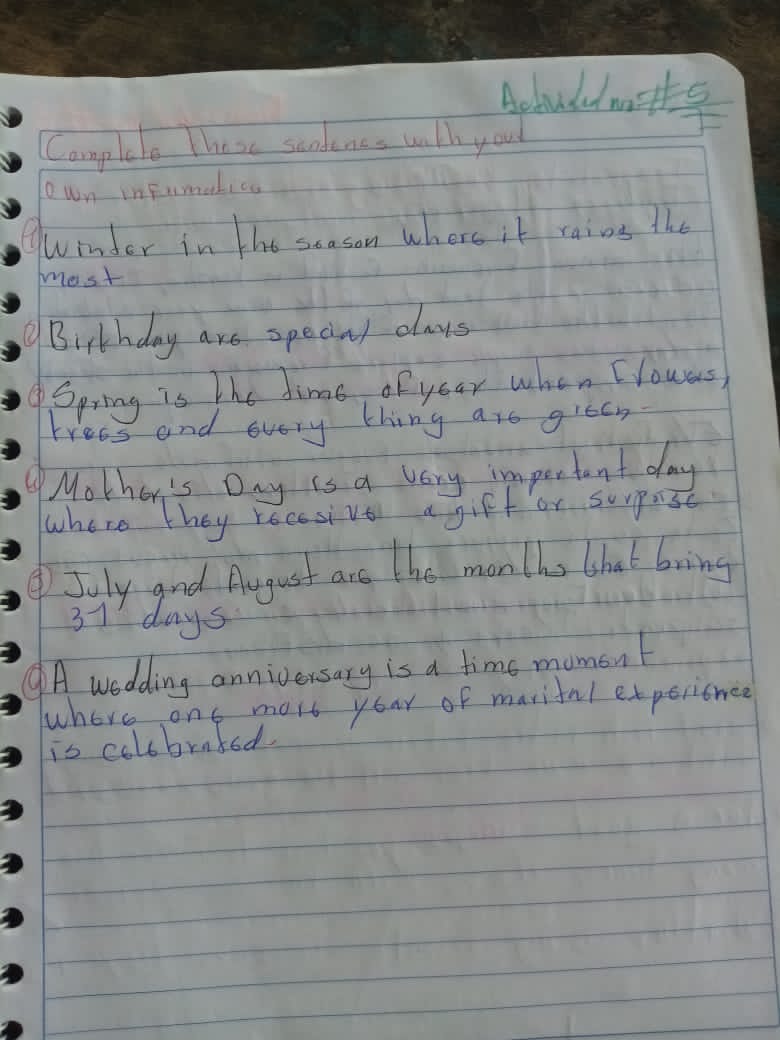 Actividad no # 5
Complete These sentenes with your
own infumatico
① Winder in the season where it rains the
most
② Birthday are special days
③ Spring is the time of year when flowers,
trees and every thing are green
④ Mother's Day is a very important day
where they recesive a gift or surprise
⑤ July and August are the months that bring
31 days
⑥ A wedding anniversary is a time mument
where one more year of marital experience
is celebrated.